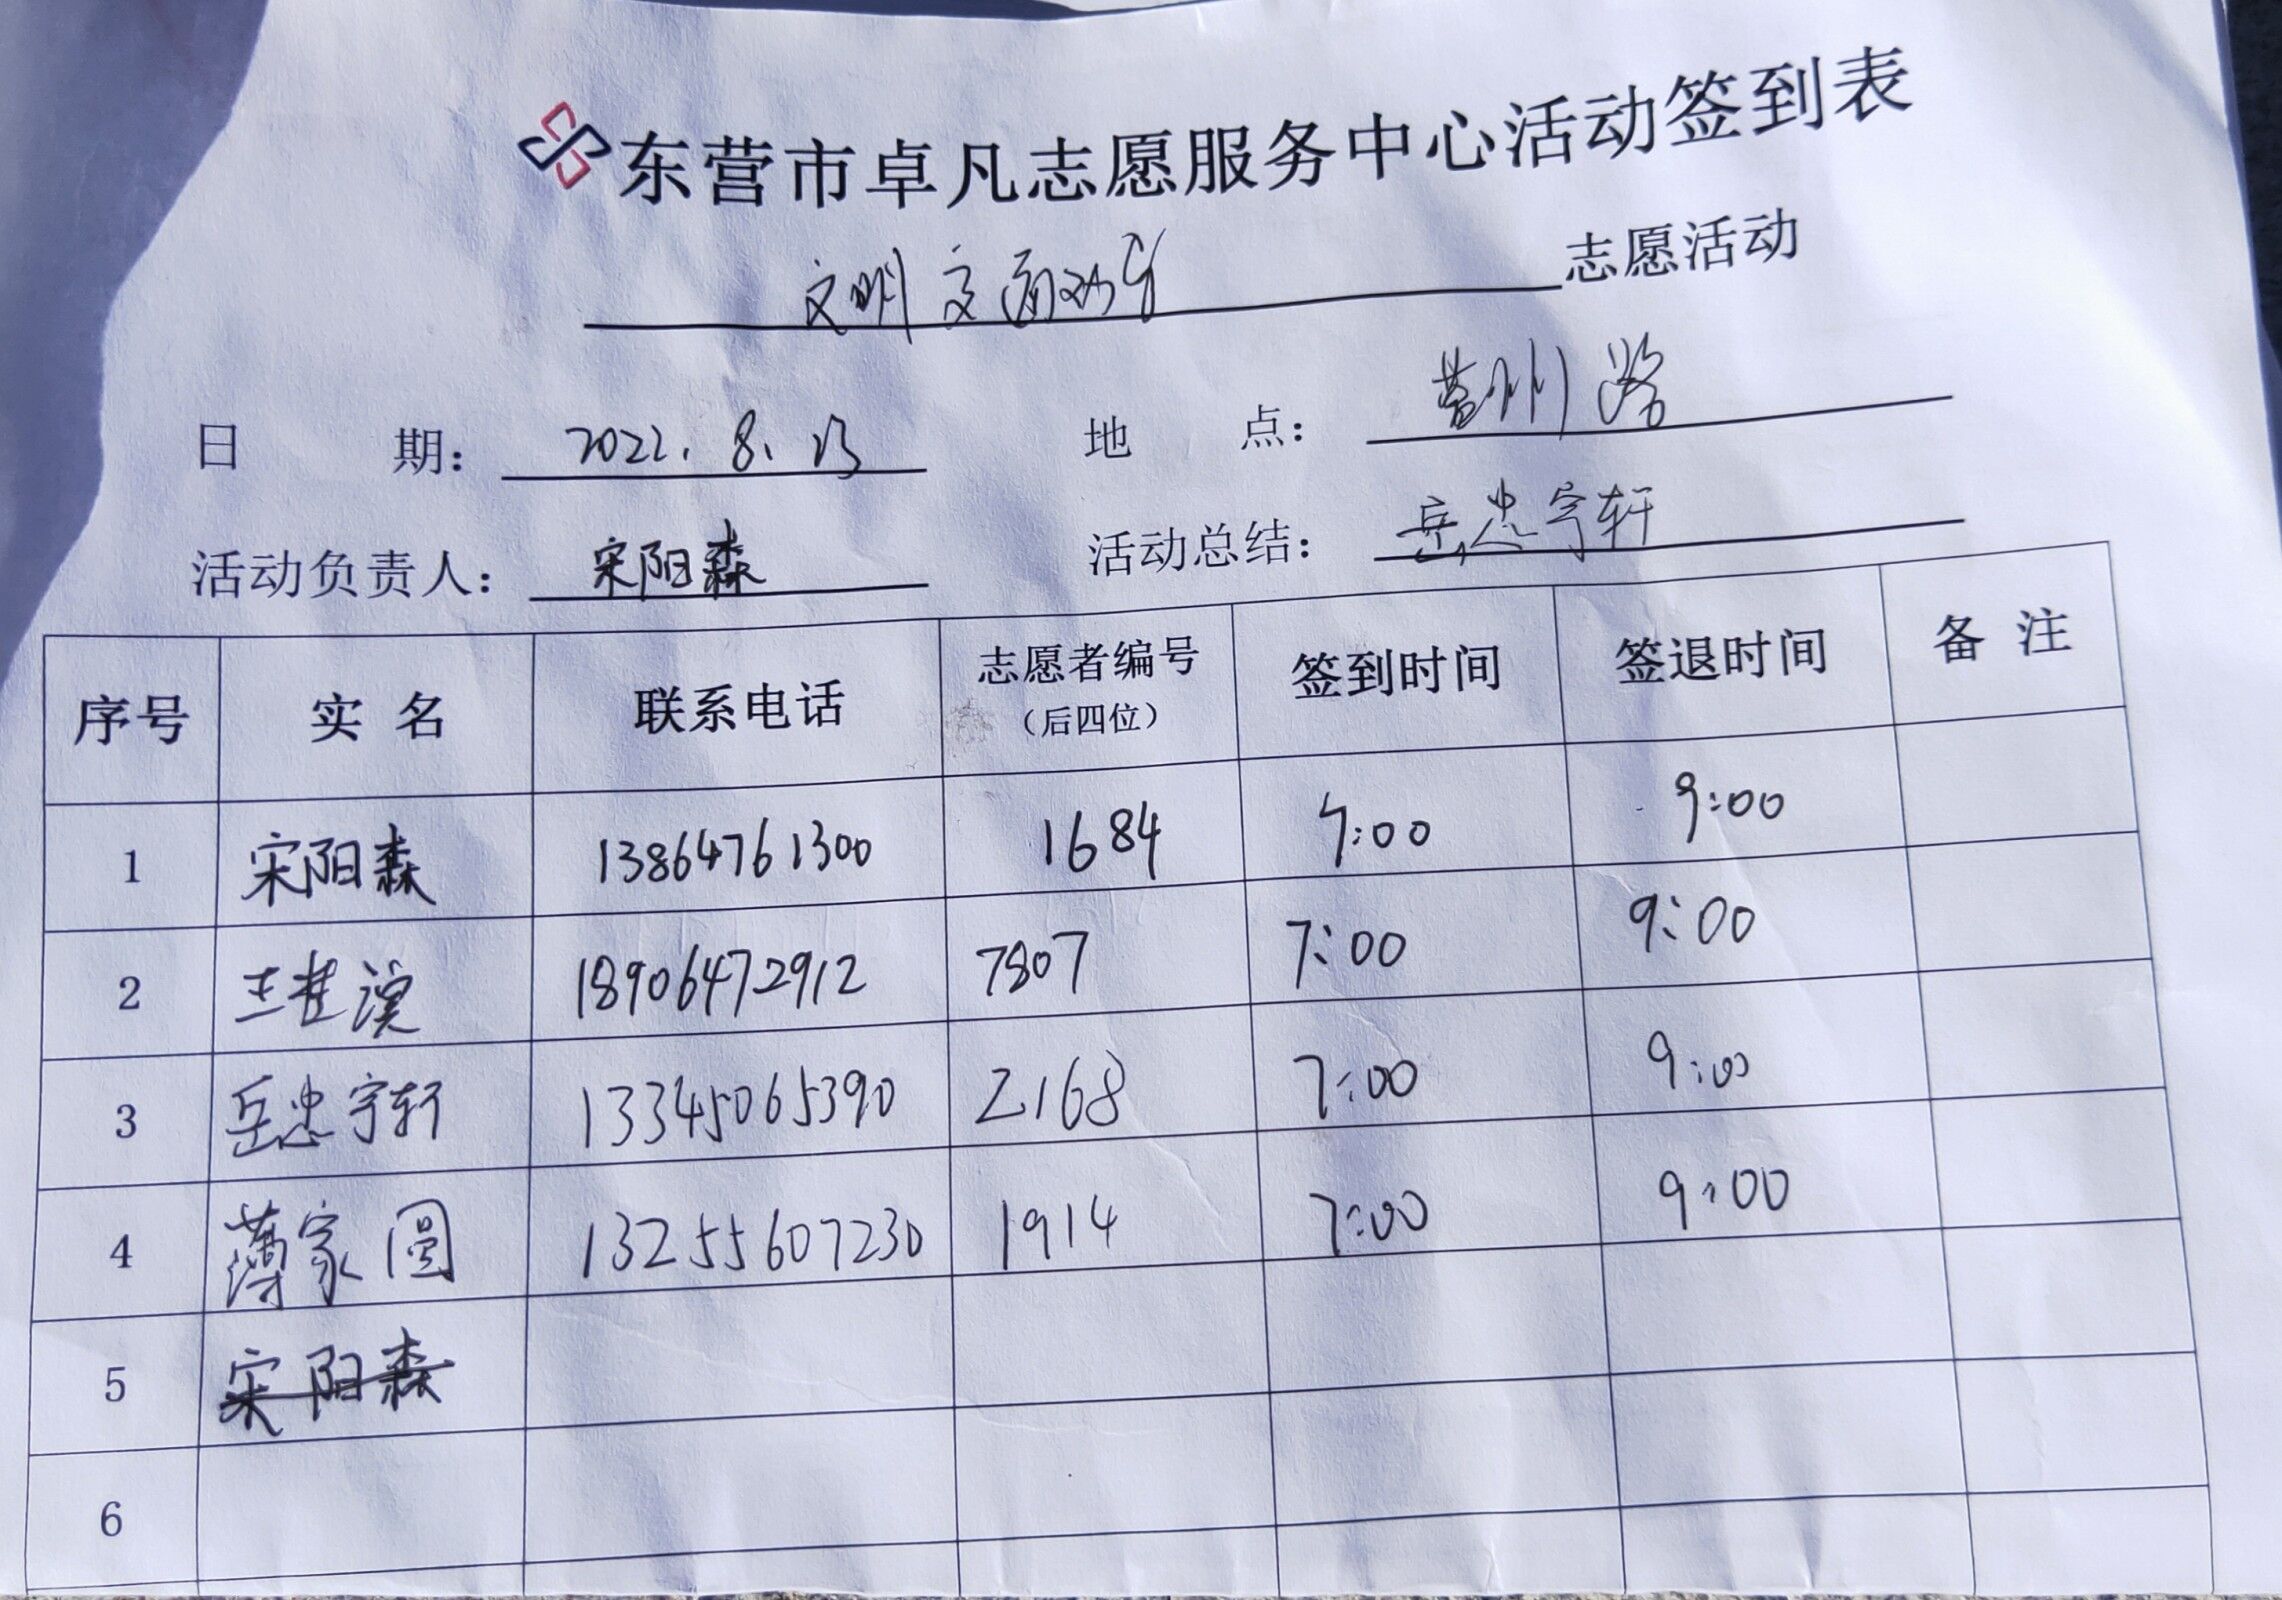 东营市卓凡志愿服务中心活动签到表
文明交通劝导 志愿活动
日期： 2022.8.23 地点： 莒州路
活动负责人： 宋阳森 活动总结： 岳忠宇轩
序号 实名 联系电话 志愿者编号（后四位） 签到时间 签退时间 备注
1 宋阳森 13864761300 1684 7:00 9:00
2 王桂滨 18906472912 7807 7:00 9:00
3 岳忠宇轩 13345065390 2168 7:00 9:00
4 薄家圆 13255607230 1914 7:00 9:00
5 宋阳森
6